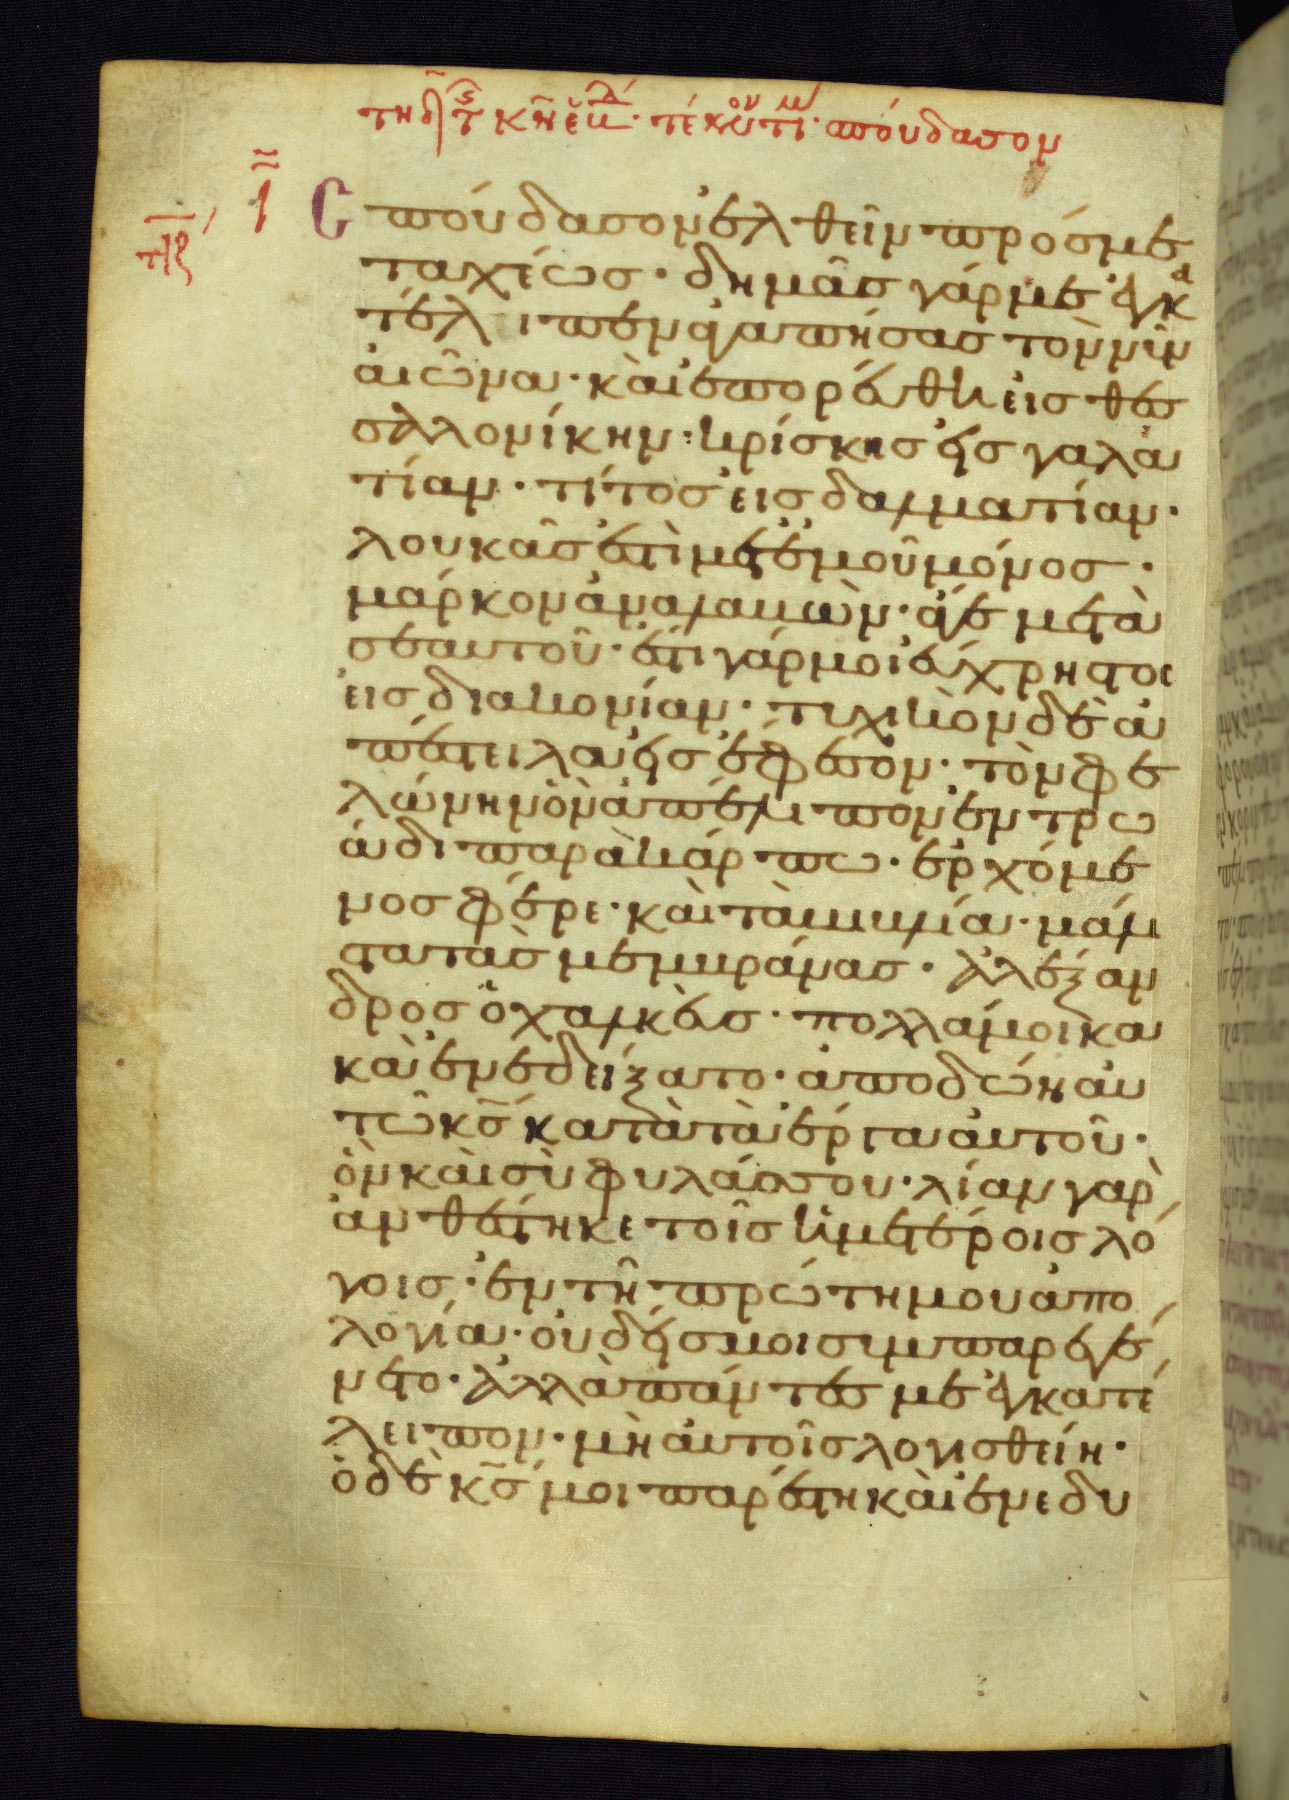 σπούδασον
Σπούδασον ἐλθεῖν πρός με
ταχέως· δημᾶς γάρ με ἐγκα
τέλιπεν ἀγαπήσας τὸν νῦν
αἰῶνα· καὶ ἐπορεύθη εἰς θεσ
σαλονίκην· κρίσκης εἰς γαλα
τίαν· τίτος εἰς δαλματίαν·
λουκᾶς ἐστὶ μετ' ἐμοῦ μόνος·
μάρκον ἀναλαβὼν· ἄγε μετὰ
σεαυτοῦ· ἔστι γάρ μοι εὔχρηστος
εἰς διακονίαν· τυχικὸν δὲ ἀ
πέστειλα εἰς ἔφεσον· τὸν φε
λώνην ὃν ἀπέλιπον ἐν τρω
άδι παρὰ κάρπω· ἐρχόμε
νος φέρε· καὶ τὰ βιβλία· μάλι
στα τὰς μεμβράνας· ἀλέξαν
δρος ὁ χαλκεὺς· πολλά μοι κα
κὰ ἐνεδείξατο· ἀποδώη αὐ
τῶ κς̄ κατὰ τὰ ἔργα αὐτοῦ·
ὃν καὶ σὺ φυλάσσου· λίαν γὰρ
ἀνθέστηκε τοῖς ἡμετέροις λό
γοις· ἐν τῆ πρώτη μου ἀπο
λογία· οὐδείς μοι συμπαρεγέ
νετο· ἀλλὰ πάντες με ἐγκατέ
λειπον· μὴ αὐτοῖς λογισθείη·
ὁ δὲ κς̄ μοι παρέστη καὶ ἐνεδυ